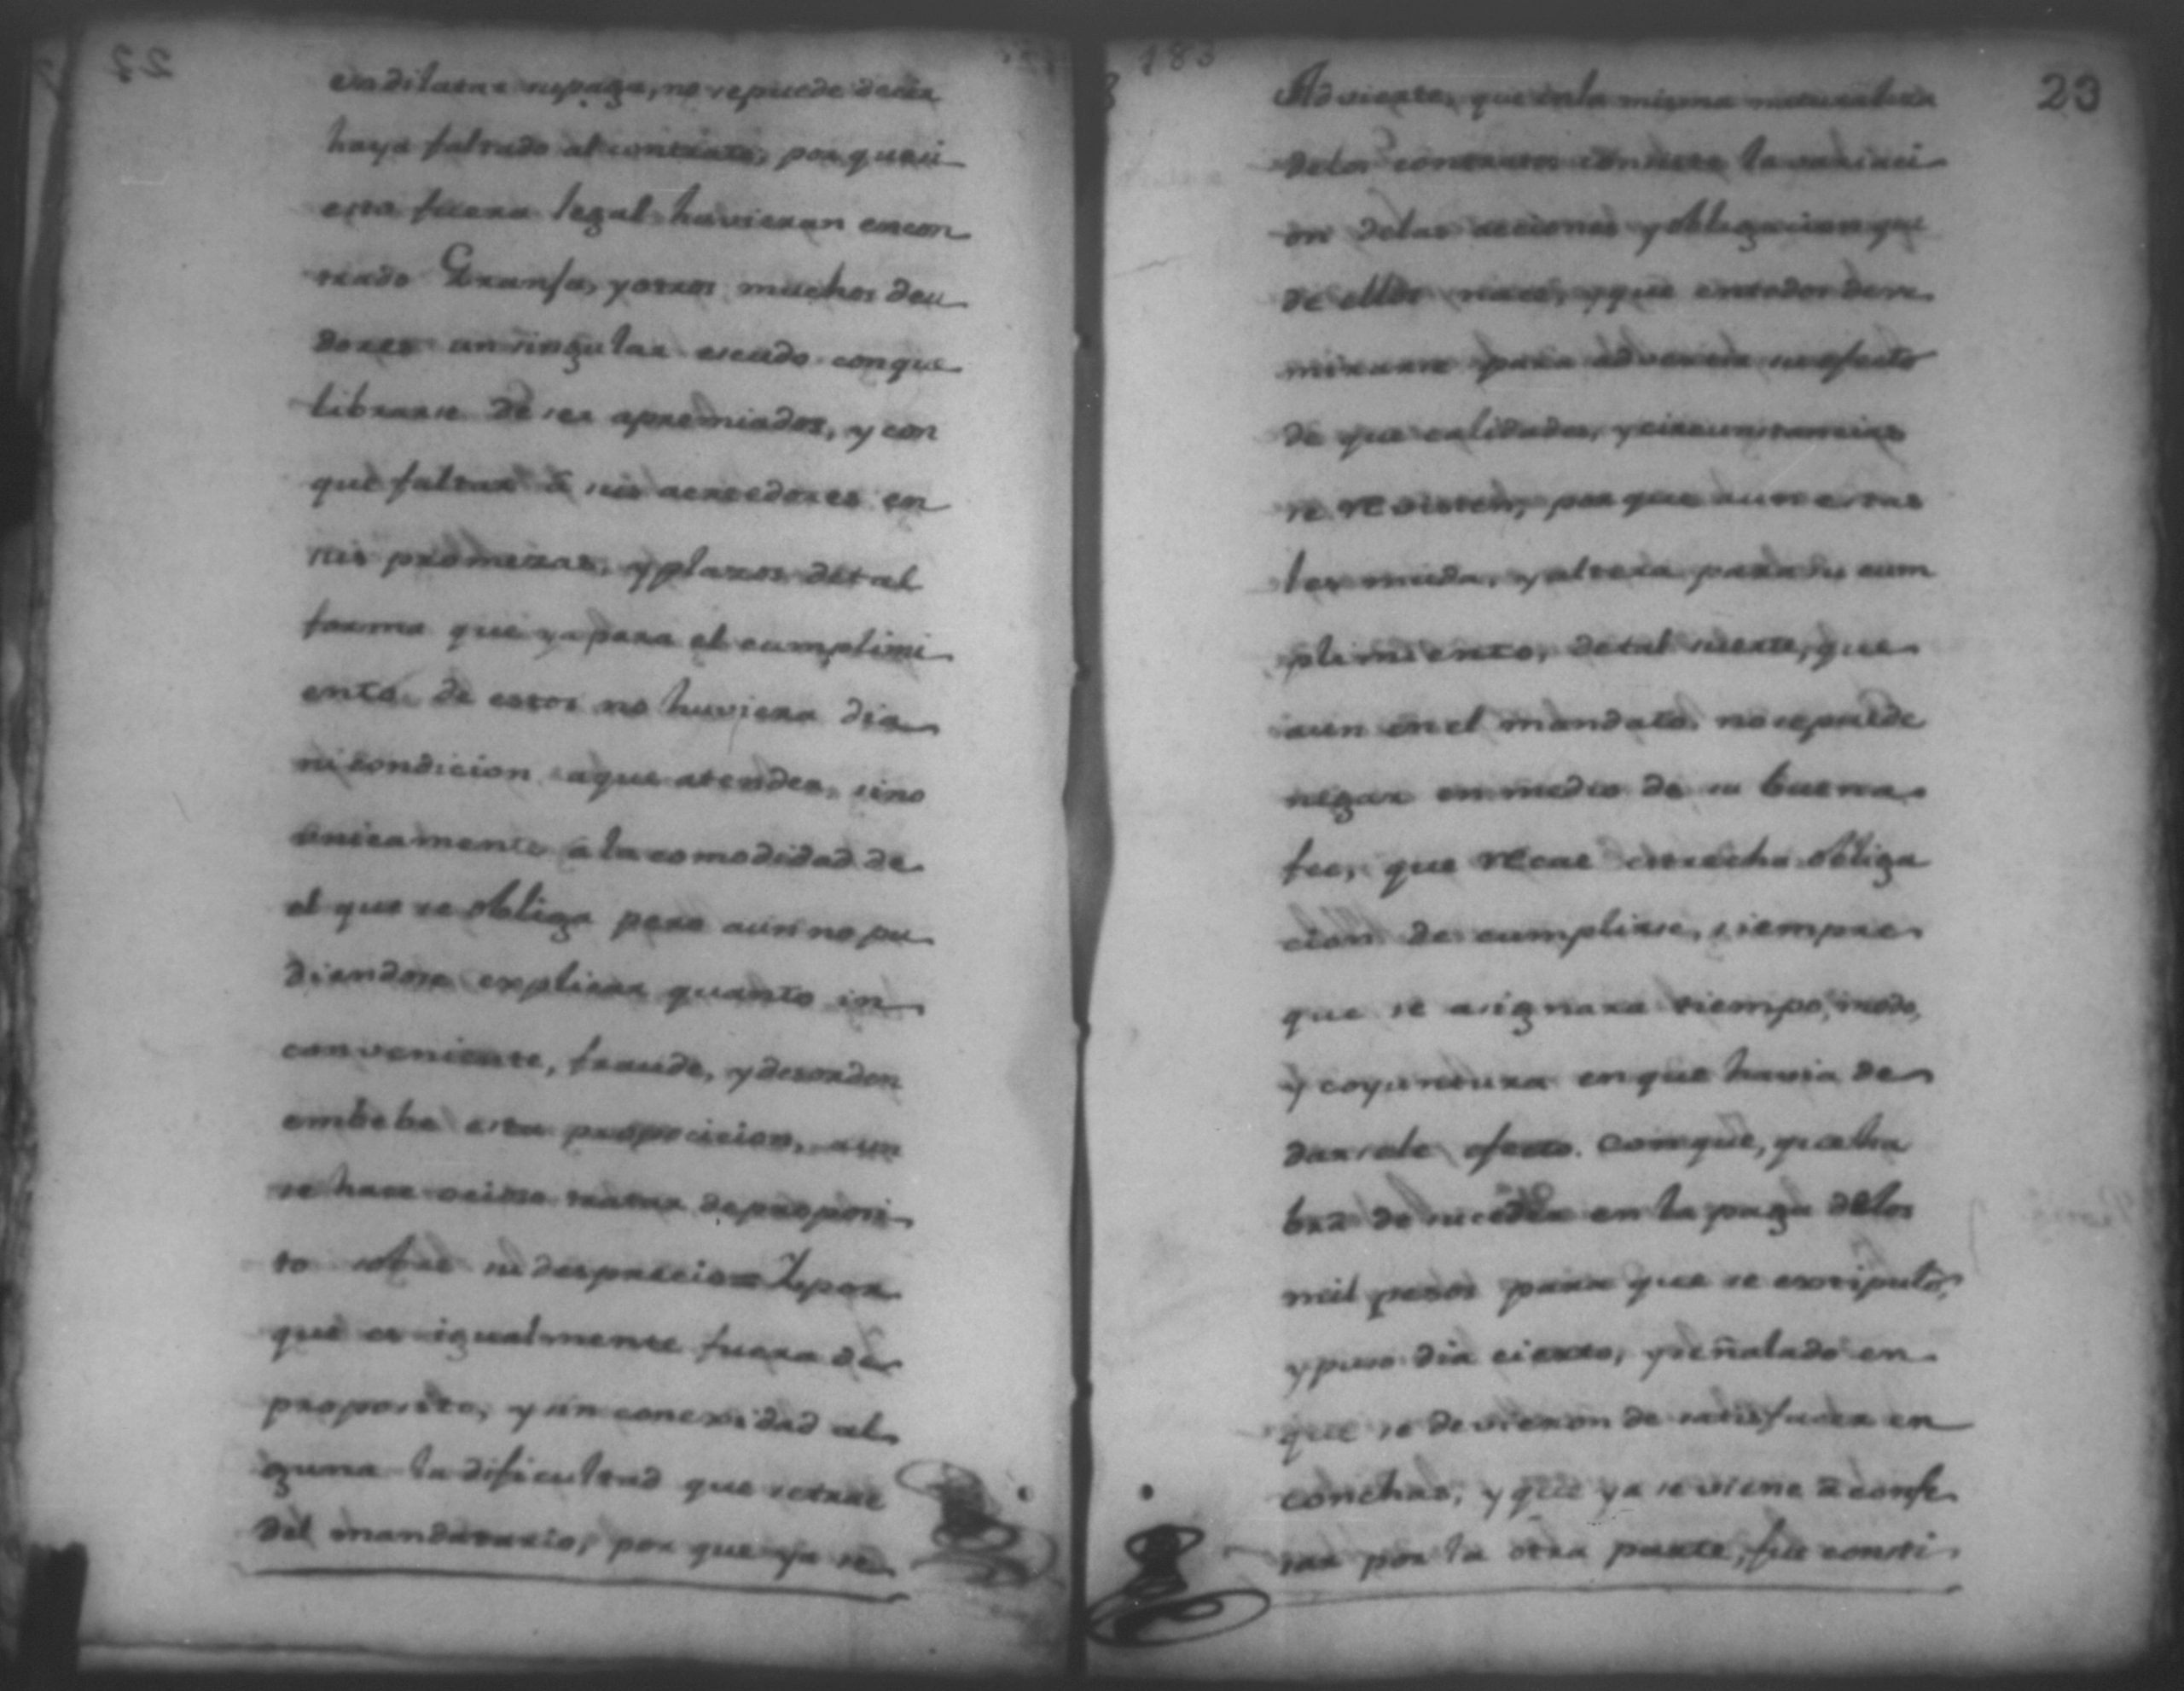 en dilatar su paga, no se puede decir
haya faltado al contrato, por que si
esto fuera legal huvieran encon
trado Granfa, y otros muchos deu
dores un singular escudo con que
librarse de ser apremiados, y con
que faltar â sus acreedores en
sus promesas, y plazos de tal
forma que ya para el cumplimi
ento de estos no huviera dia
ni condicion aque atender, sino
unicamente â la comodidad de
el que se obliga pero aun no pu
diendose explicar quanto in
conveniente, fraude, y desorden
embebe esta proposicion, aun
se hace ocioso tratar de proposi
to sobre su desprecio = Y por
que es igualmente fuera de
proposito, y sin conexidad al
guna la dificultad que se trae
del mandatario, por que ya se
183
23
Advierte, que en la misma naturaleza
de los contratos consiste la variaci
on de las acciones y obligacion que
de ellos nace, y que en todos deve
mirarse para advertir su efecto
de que calidades, y circunstancias
se revisten, por que aun estas
los muda, y altera para su cum
plimiento, de tal suerte, que
aun en el mandato, no se puede
negar en medio de su buena
fee, que recae estrecha obliga
cion de cumplirse, siempre
que se asignara tiempo, modo,
y coyuntura en que havia de
darsele efecto. Conque, que
bra de suceder en la paga de los
mil pesos para que se estipulô,
y puso dia cierto, y señalado en
que se devieron de satisfacer en
conchas, y que ya se viene â confe
sar por la otra parte, fue consti